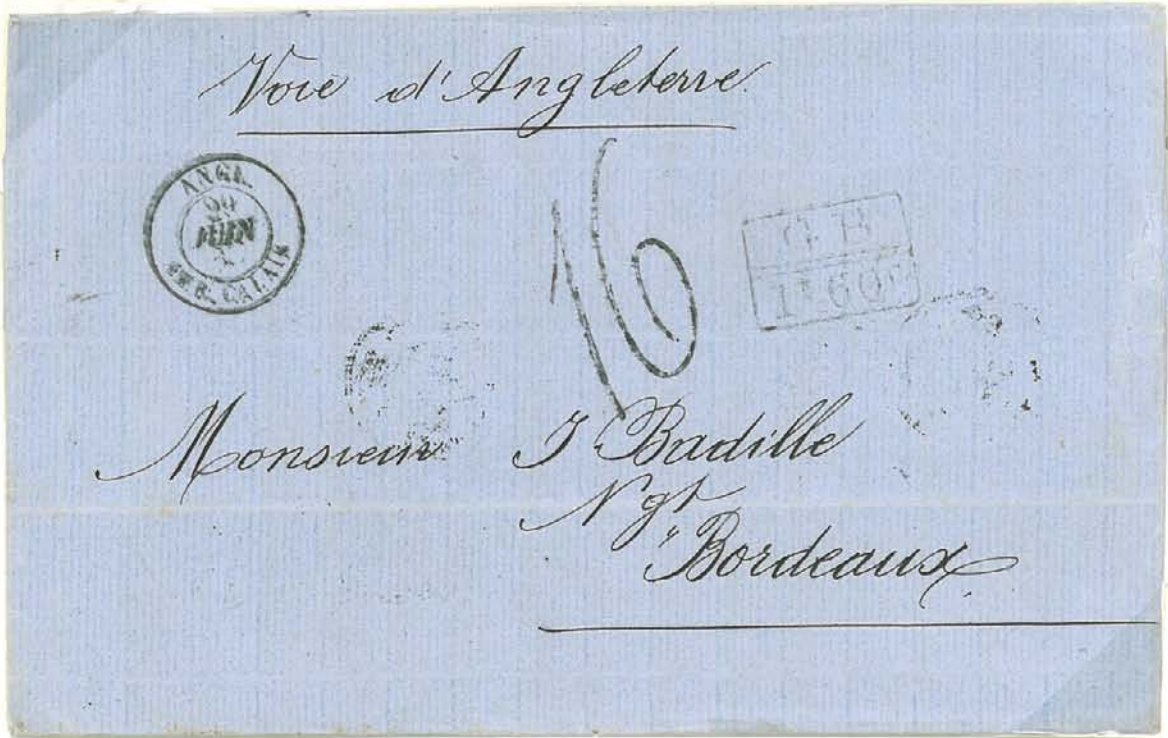 Voie d'Angleterre
ANGL.
JUIN
AMB. CALAIS
16
G B
1F 60c
Monsieur J. Badille
Ngt
Bordeaux